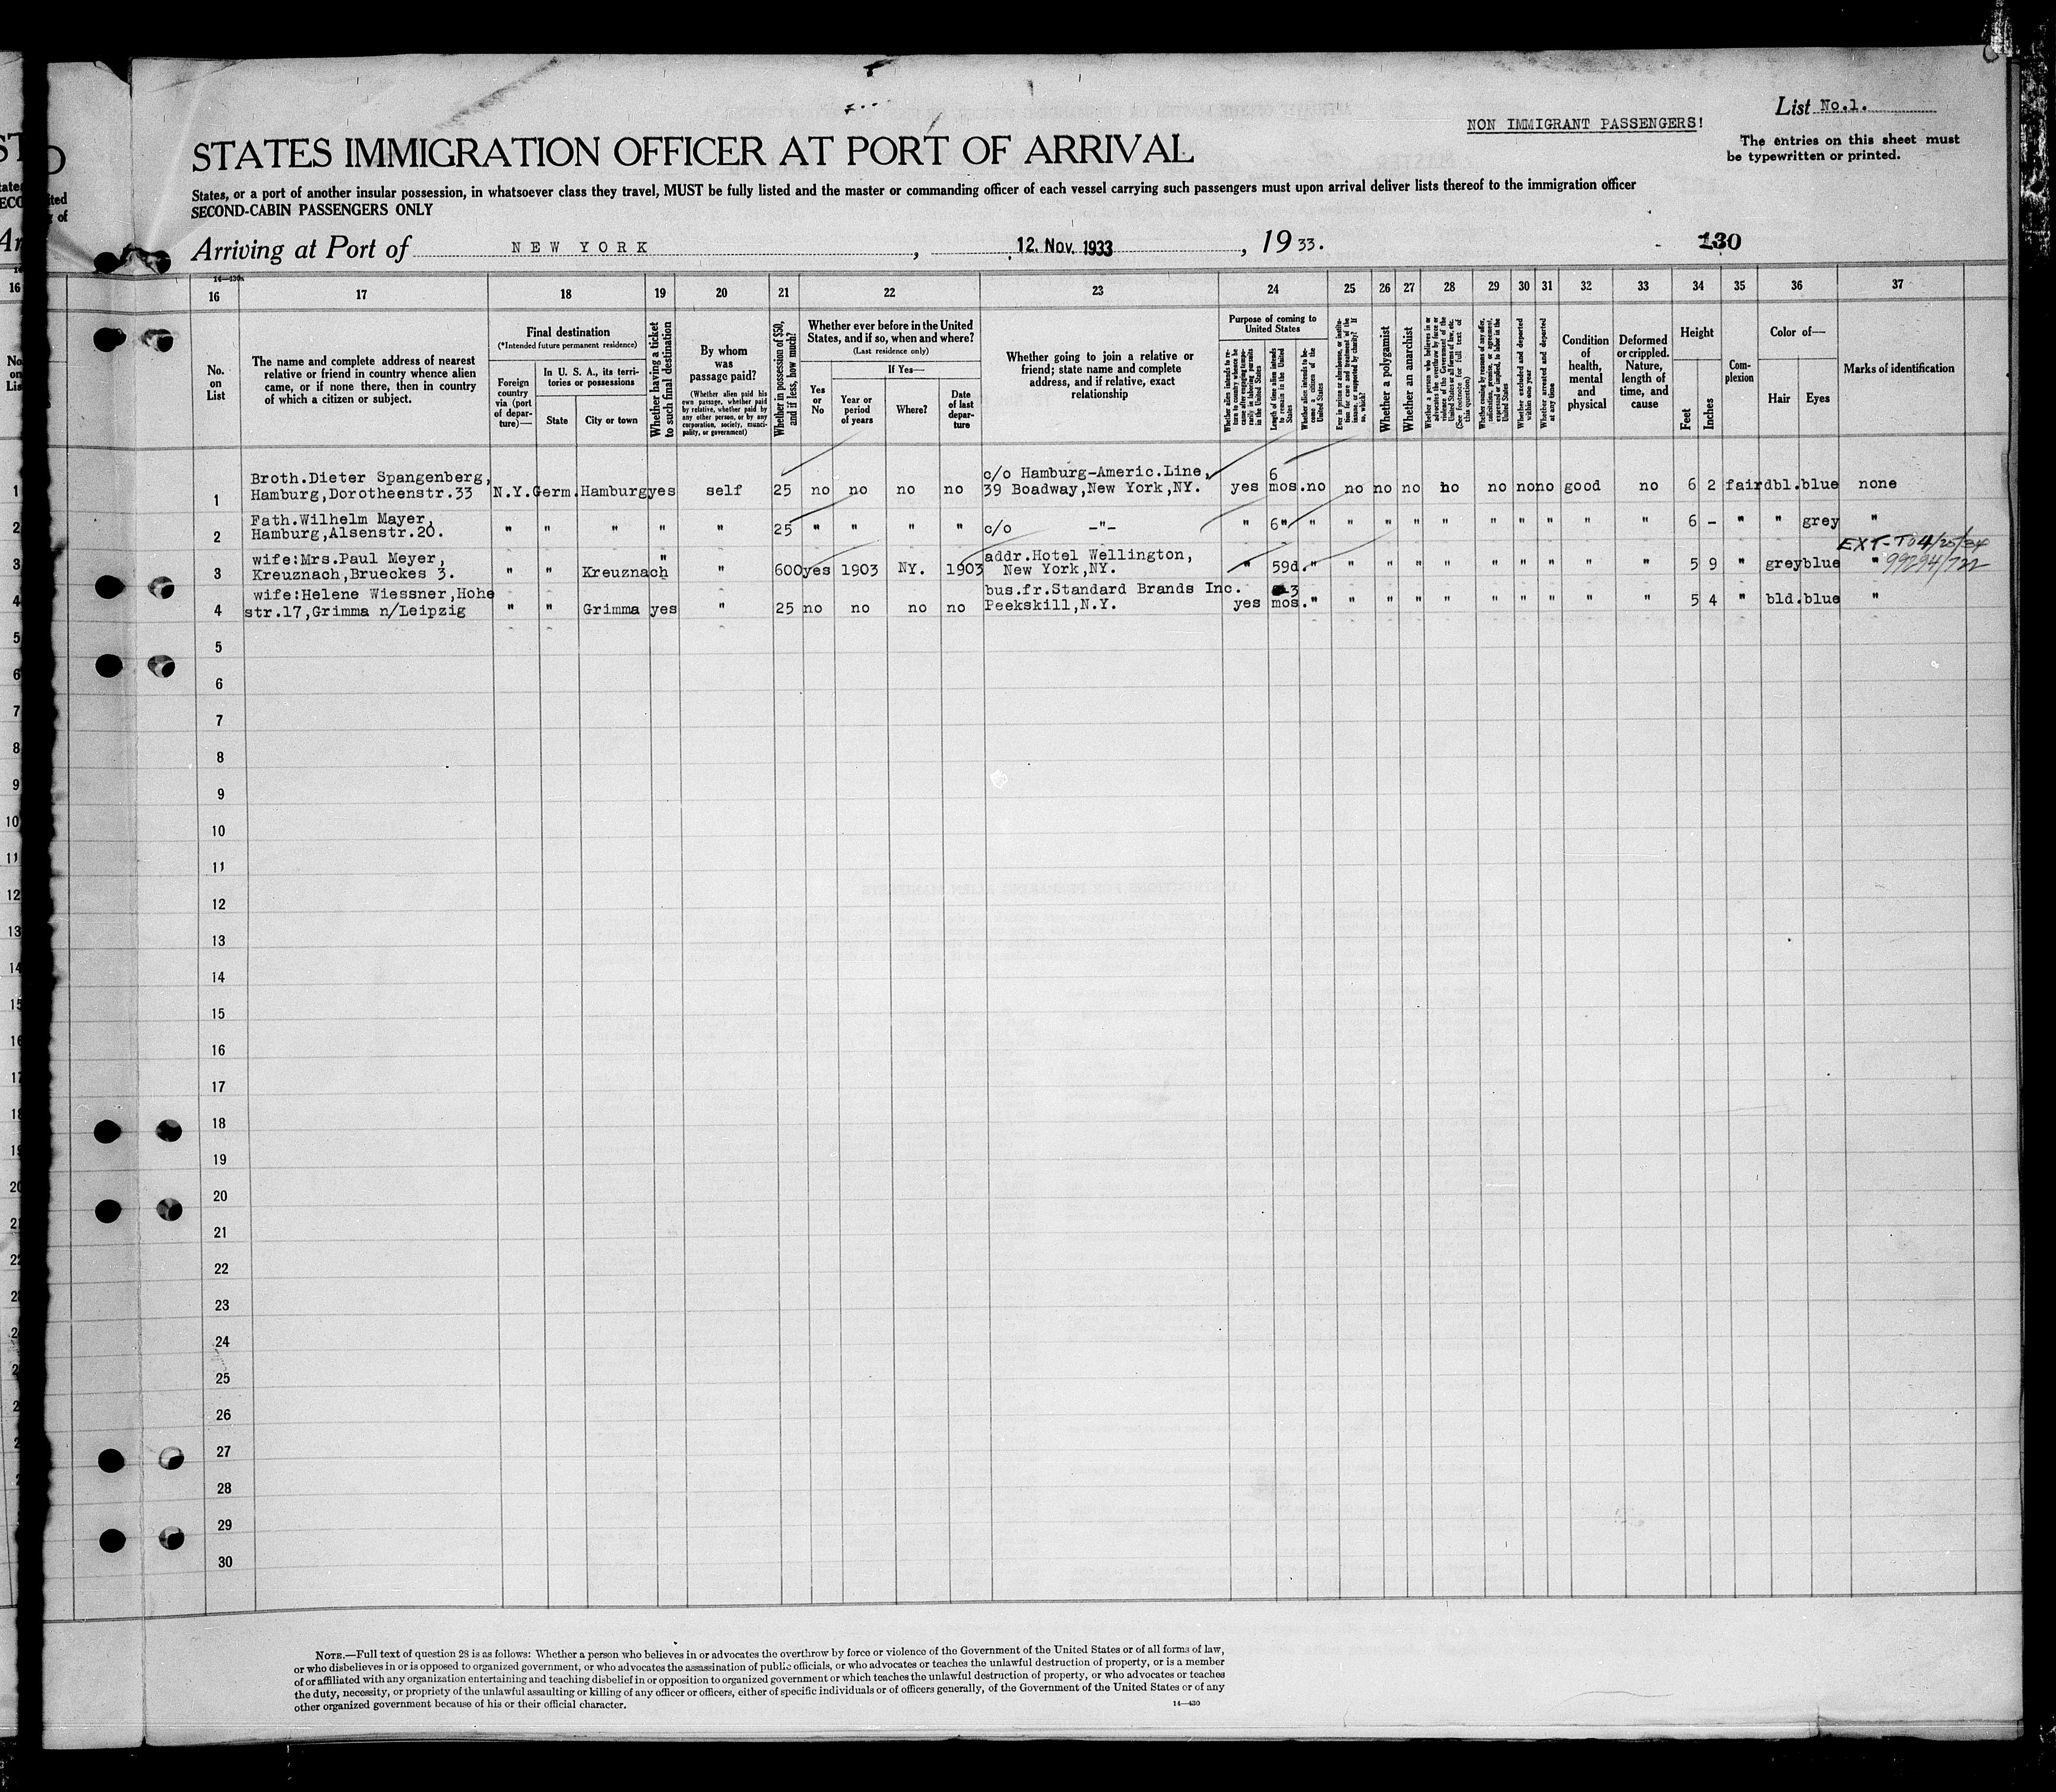 List No.1.
NON IMMIGRANT PASSENGERS!
The entries on this sheet must
be typewritten or printed.
STATES IMMIGRATION OFFICER AT PORT OF ARRIVAL
States, or a port of another insular possession, in whatsoever class they travel, MUST be fully listed and the master or commanding officer of each vessel carrying such passengers must upon arrival deliver lists thereof to the immigration officer
SECOND-CABIN PASSENGERS ONLY
Arriving at Port of NEW YORK, 12. Nov. 1933, 19 33.
130
14—430
16 17 18 19 20 21 22 23 24 25 26 27 28 29 30 31 32 33 34 35 36 37
No.
on
List
The name and complete address of nearest
relative or friend in country whence alien
came, or if none there, then in country
of which a citizen or subject.
Final destination
(*Intended future permanent residence)
Foreign
country
via (port
of depar-
ture)—
In U. S. A., its terri-
tories or possessions
State
City or town
Whether having a ticket
to such final destination
By whom
was
passage paid?
(Whether alien paid his
own passage, whether paid
by relative, whether paid by
any other person, or by any
corporation, society, munici-
pality, or government)
Whether in possession of $50,
and if less, how much?
Whether ever before in the United
States, and if so, when and where?
(Last residence only)
Yes
or
No
If Yes—
Year or
period
of years
Where?
Date
of last
depar-
ture
Whether going to join a relative or
friend; state name and complete
address, and if relative, exact
relationship
Purpose of coming to
United States
Whether alien intends to re-
turn to country whence he
came after engaging tempo-
rarily in laboring pursuits
in the United States
Length of time alien intends
to remain in the United
States
Whether alien intends to be-
come a citizen of the
United States
Ever in prison or almshouse, or institu-
tion for care and treatment of the
insane, or supported by charity? If
so, which?
Whether a polygamist
Whether an anarchist
Whether a person who believes in or
advocates the overthrow by force or
violence of the Government of the
United States or all forms of law, etc.
(See footnote for full text of
this question)
Whether coming by reason of any offer,
solicitation, promise, or agreement,
expressed or implied, to labor in the
United States
Whether excluded and deported
within one year
Whether arrested and deported
at any time
Condition
of
health,
mental
and
physical
Deformed
or crippled.
Nature,
length of
time, and
cause
Height
Feet
Inches
Com-
plexion
Color of—
Hair
Eyes
Marks of identification
Broth.Dieter Spangenberg,
Hamburg,Dorotheenstr.33
c/o Hamburg-Americ.Line,
39 Boadway,New York,NY.
6
mos.
1 N.Y. Germ. Hamburg yes self 25 no no no no yes no no no no no no no no good no 6 2 fair dbl. blue none
Fath.Wilhelm Mayer,
Hamburg,Alsenstr.20.
2 " " " " " 25 " " " " c/o -"- " 6" " " " " " " " " " " 6 - " " grey "
EXT-TO 4/25/34
99294/722
wife:Mrs.Paul Meyer,
Kreuznach,Brueckes 3.
addr.Hotel Wellington,
New York,NY.
3 " " Kreuznach " " 600 yes 1903 NY. 1903 " 59d. " " " " " " " " " " 5 9 " grey blue "
wife:Helene Wiessner,Hohe
str.17,Grimma n/Leipzig
bus.fr.Standard Brands Inc.
Peekskill,N.Y.
3
mos.
4 " " Grimma yes " 25 no no no no yes " " " " " " " " " " 5 4 " bld. blue "
5
6
7
8
9
10
11
12
13
14
15
16
17
18
19
20
21
22
23
24
25
26
27
28
29
30
NOTE.—Full text of question 28 is as follows: Whether a person who believes in or advocates the overthrow by force or violence of the Government of the United States or of all forms of law,
or who disbelieves in or is opposed to organized government, or who advocates the assassination of public officials, or who advocates or teaches the unlawful destruction of property, or is a member
of or affiliated with any organization entertaining and teaching disbelief in or opposition to organized government or which teaches the unlawful destruction of property, or who advocates or teaches
the duty, necessity, or propriety of the unlawful assaulting or killing of any officer or officers, either of specific individuals or of officers generally, of the Government of the United States or of any
other organized government because of his or their official character.
14—430